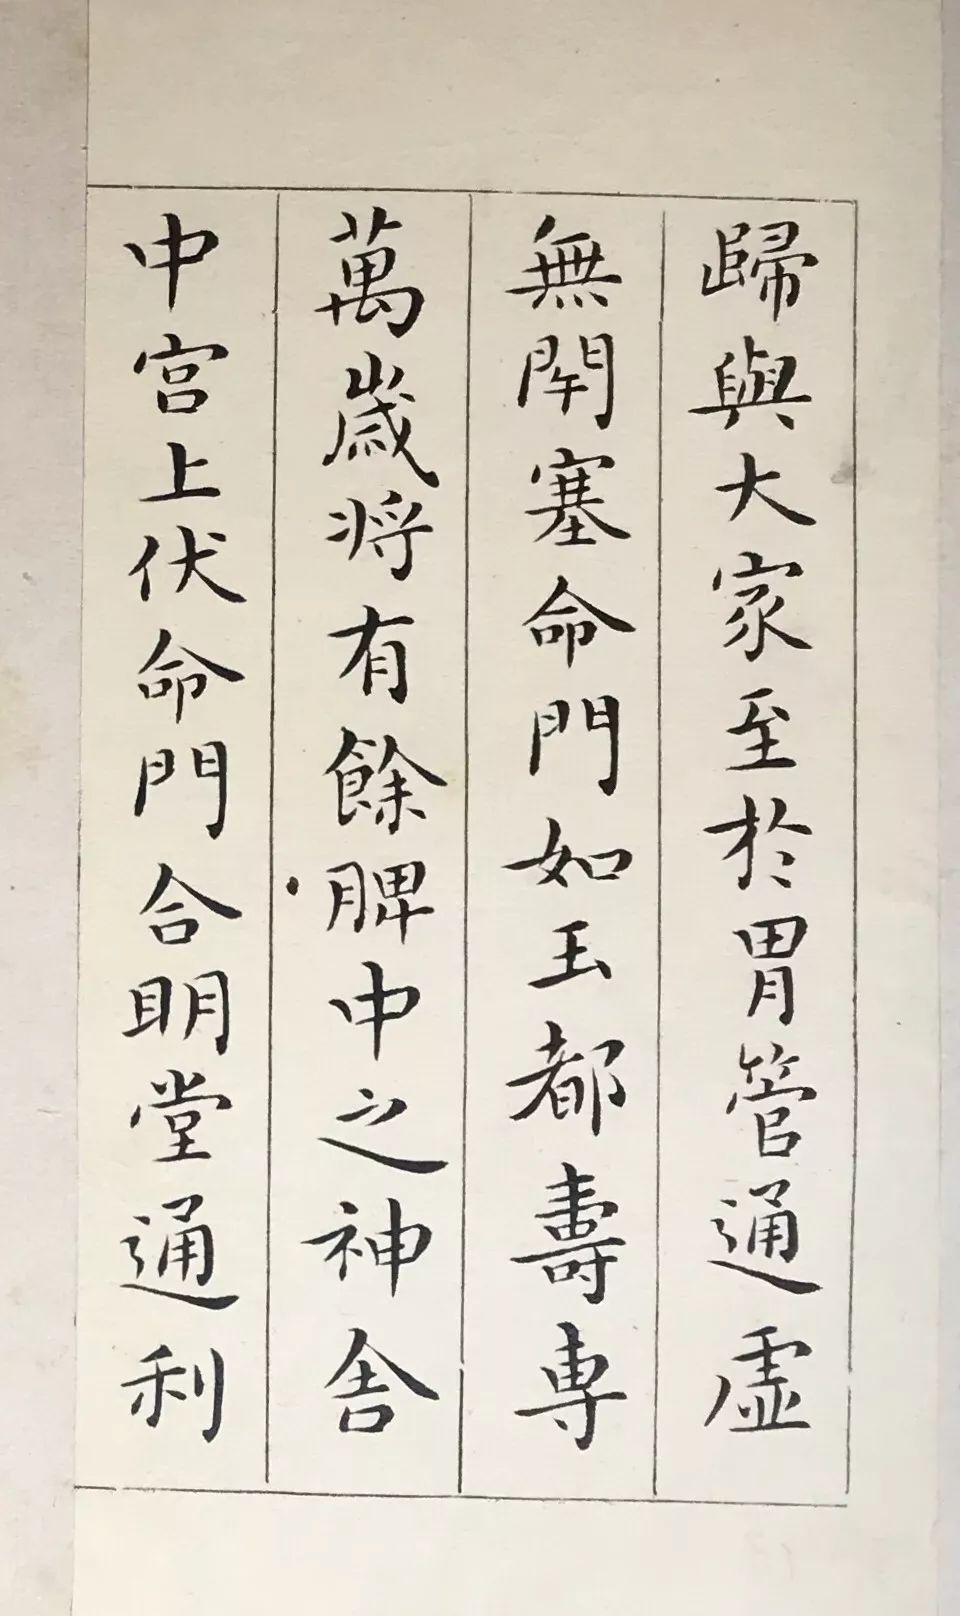 歸與大家至於胃管通虛
無閇塞命門如玉都壽專
萬歲將有餘脾中之神舍
中宮上伏命門合明堂通利